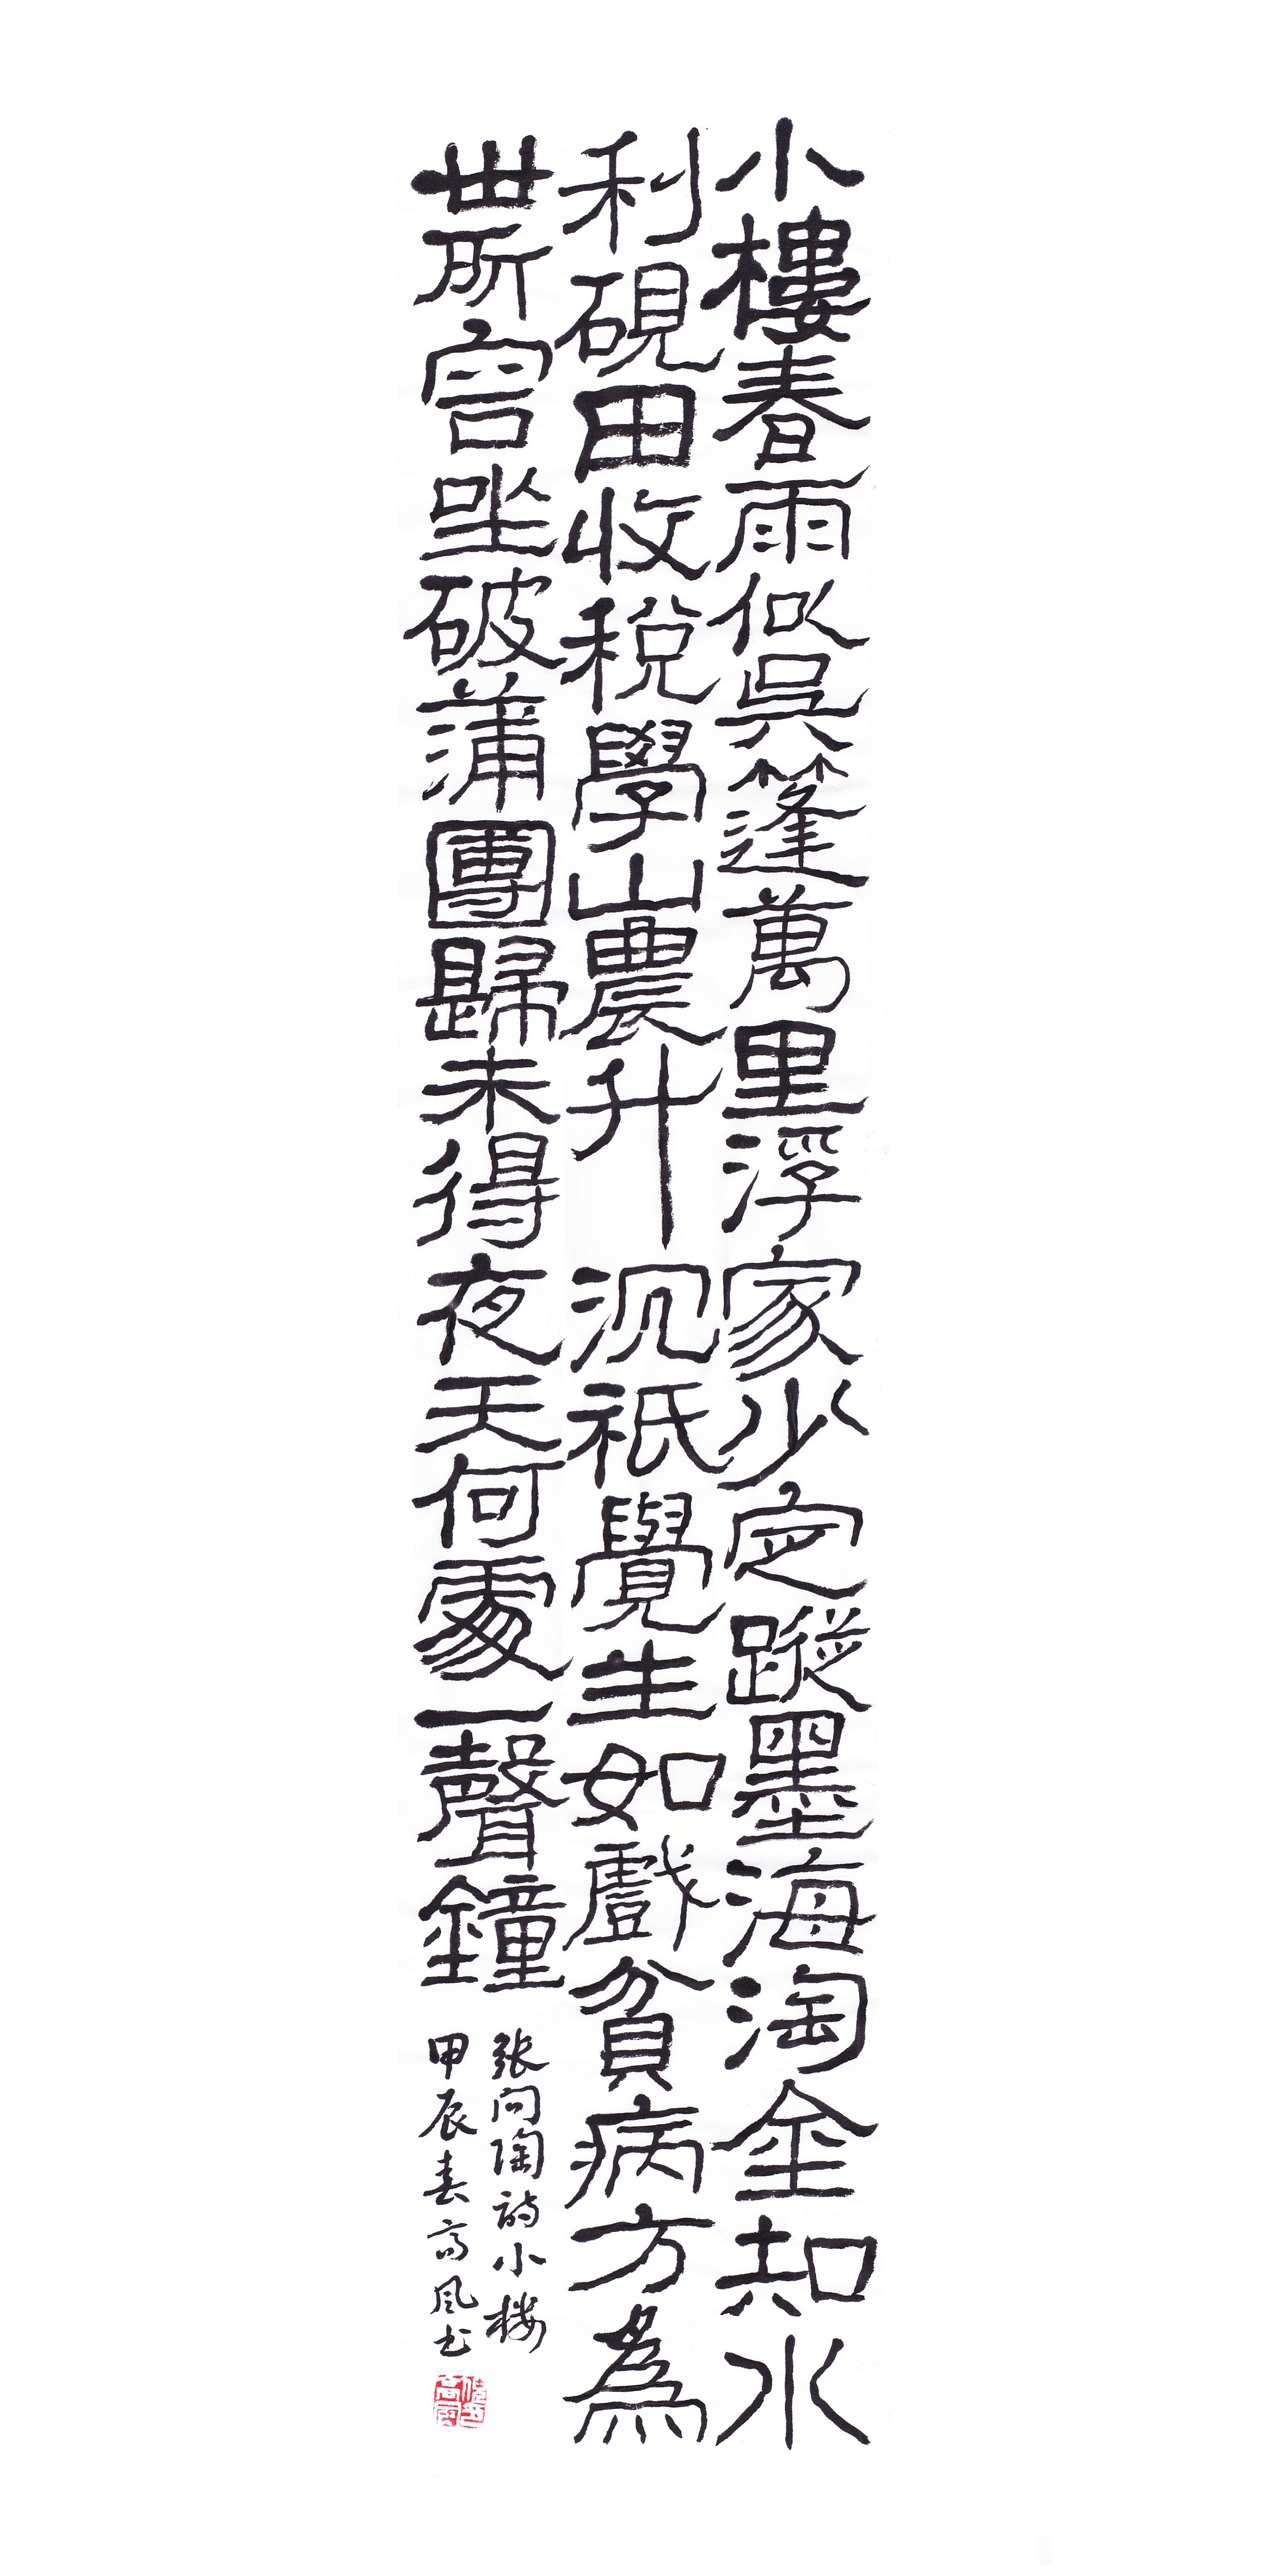 小樓春雨似吳篷萬里浮家少定蹤墨海淘金知水
利硯田收稅學山農升沉祇覺生如戲貧病方為
世所容坐破蒲團歸未得夜天何處一聲鐘
张问陶詩小楼
甲辰春高风书